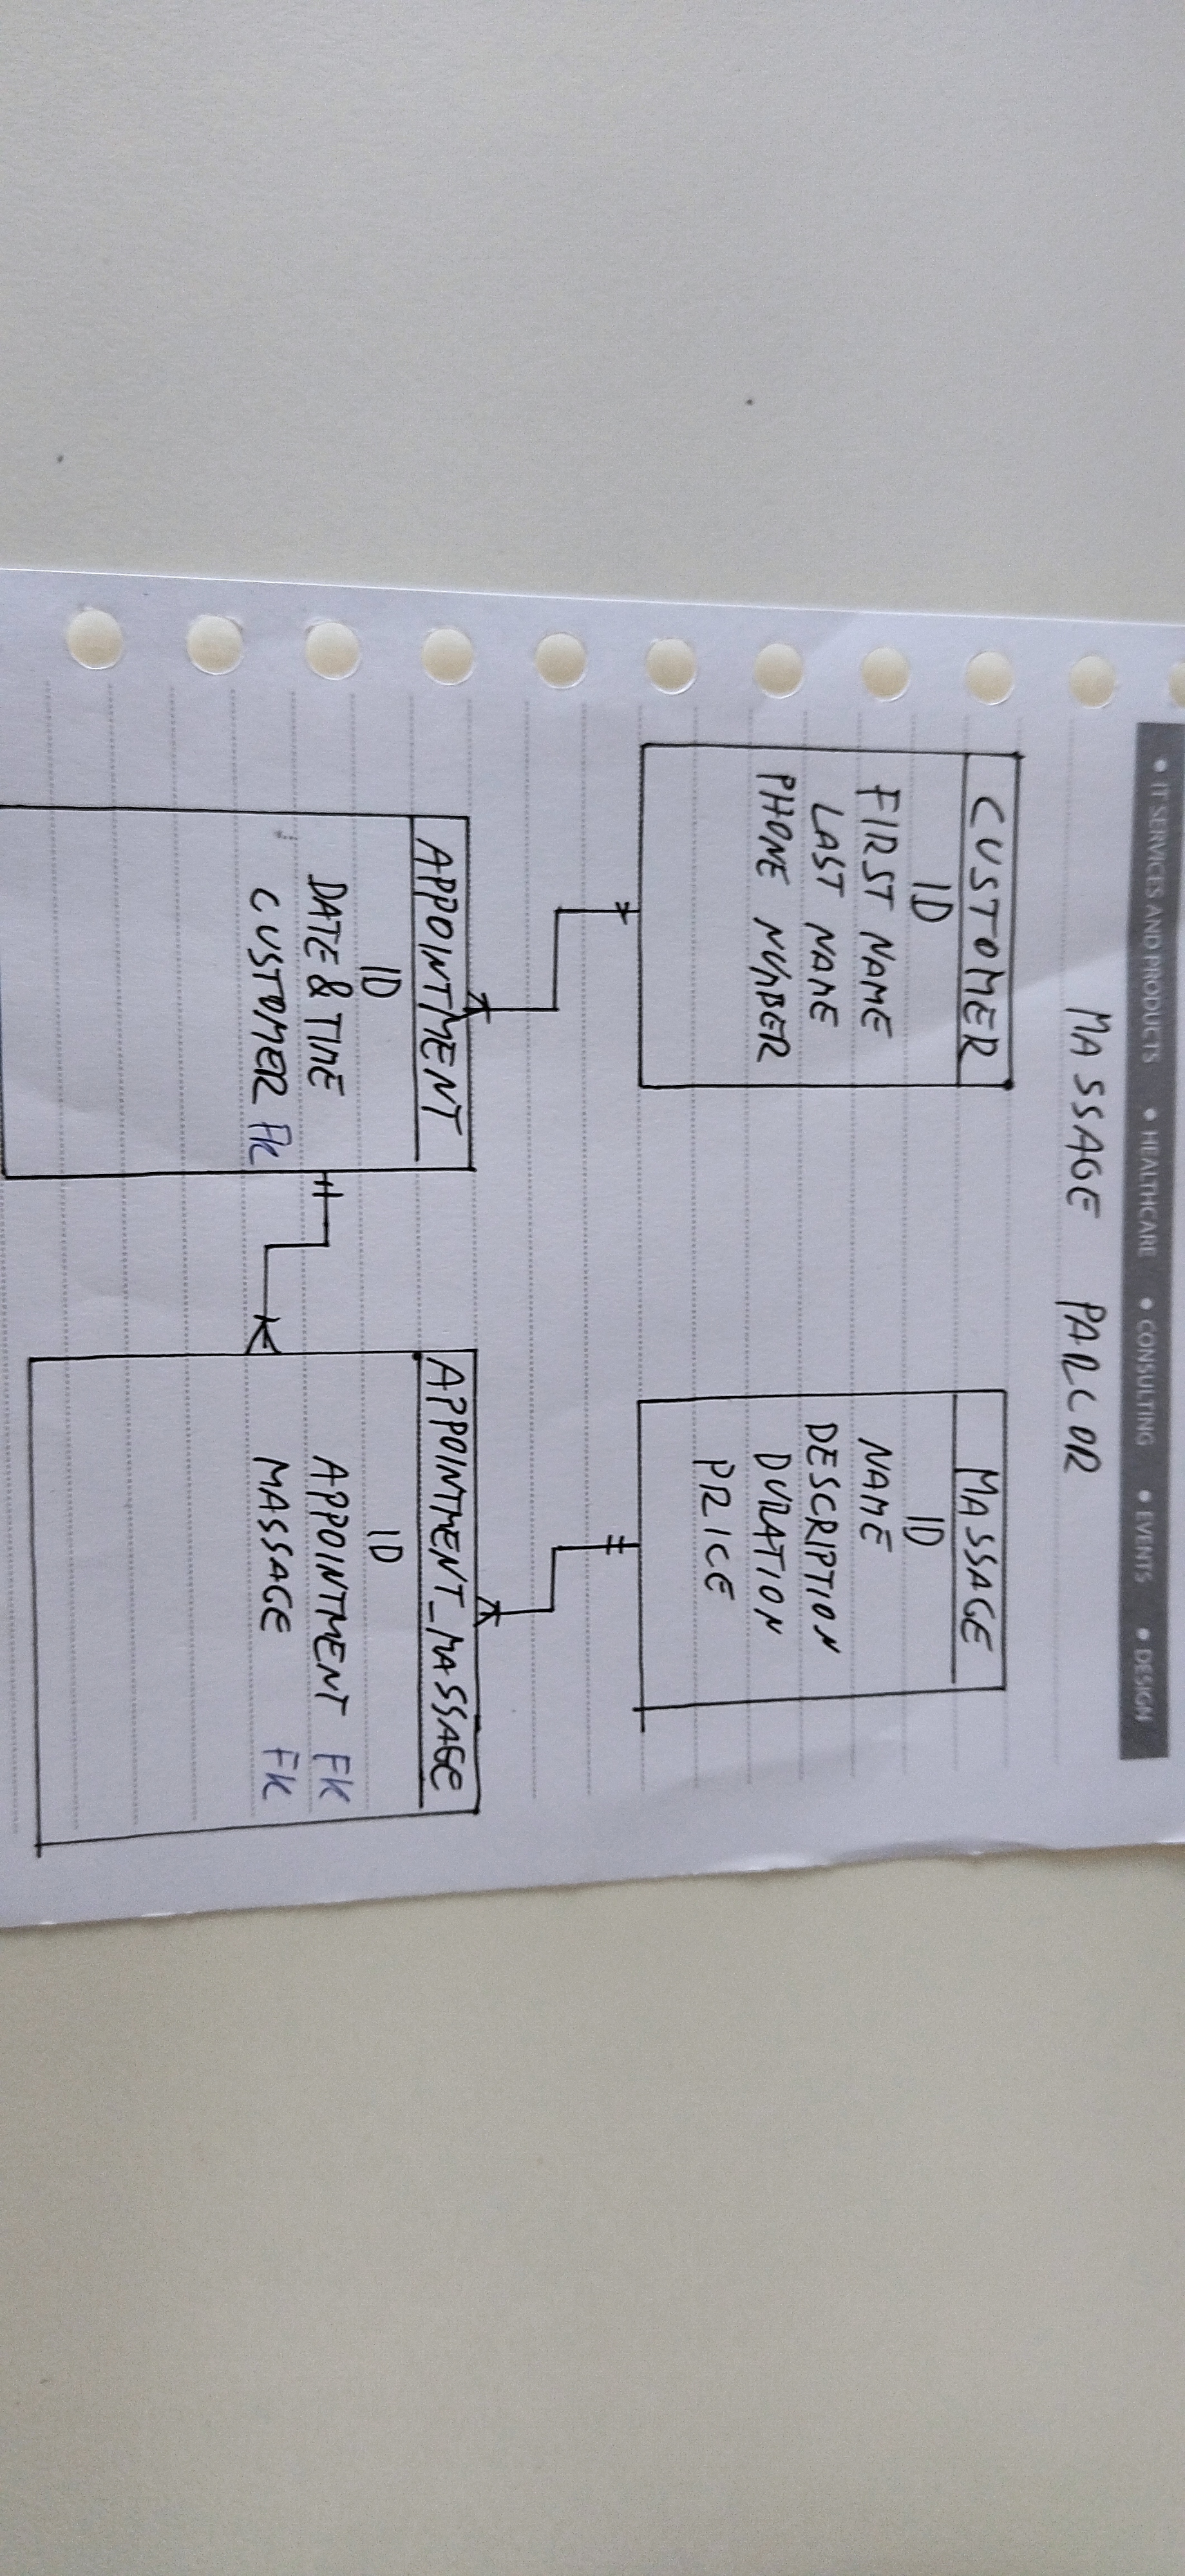 • IT SERVICES AND PRODUCTS • HEALTHCARE • CONSULTING • EVENTS • DESIGN
MASSAGE PARLOR
CUSTOMER
ID
FIRST NAME
LAST NAME
PHONE NUMBER
MASSAGE
ID
NAME
DESCRIPTION
DURATION
PRICE
APPOINTMENT
ID
DATE & TIME
CUSTOMER FK
APPOINTMENT_MASSAGE
ID
APPOINTMENT FK
MASSAGE FK